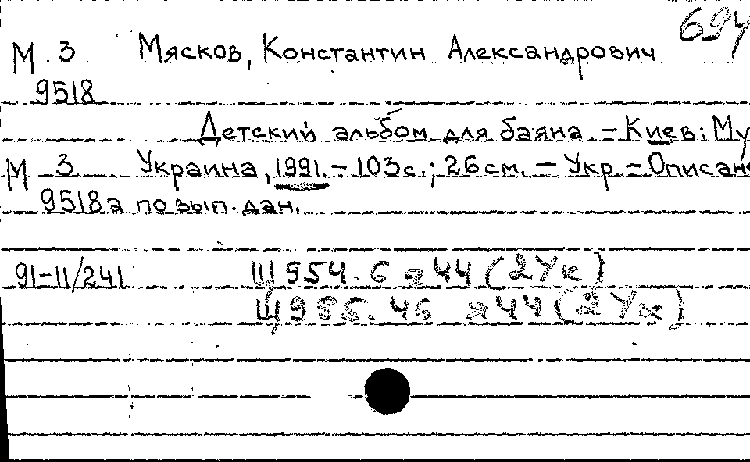 694
М 3 Мясков, Константин Александрович
9518
Детский альбом для баяна. – Киев: Му
М 3 Украина, 1991. – 103с.; 26см. – Укр. – Описан
9518а по вып. дан.
91-11/241 Щ954.6 я44 (2Ук)
Щ986.46 я44 (2Ук)